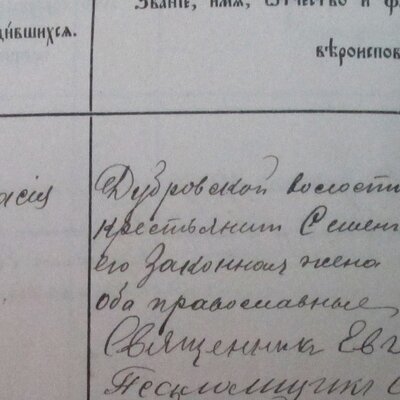 Званіе, имя, отчество и ф
дившихся.
вѣроиспов
асія
Дубровской волости
крестьянин Семен
его законная жена
оба православные
Священник Евг
Псаломщик